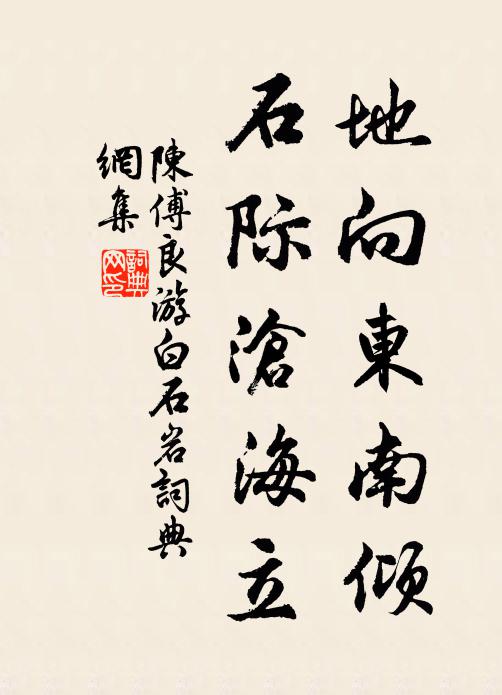 地向東南傾
石际滄海立
陳傅良游白石岩詞典
網集
詞典
网印